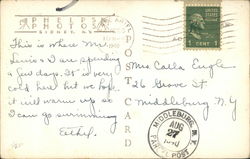 PHELPS
PHOTO
SIDNEY, N.Y.
This is where Mr.
Lewis & I are spending
a few days. It is very
cold here but we hope
it will warm up so
I can go swimming
Ethel.
POST CARD
UNITED STATES POSTAGE
1 CENT 1
Mrs. Calla Engle
26 Grove St
Middleburg N Y
MIDDLEBURG, N.Y.
AUG
27
POST